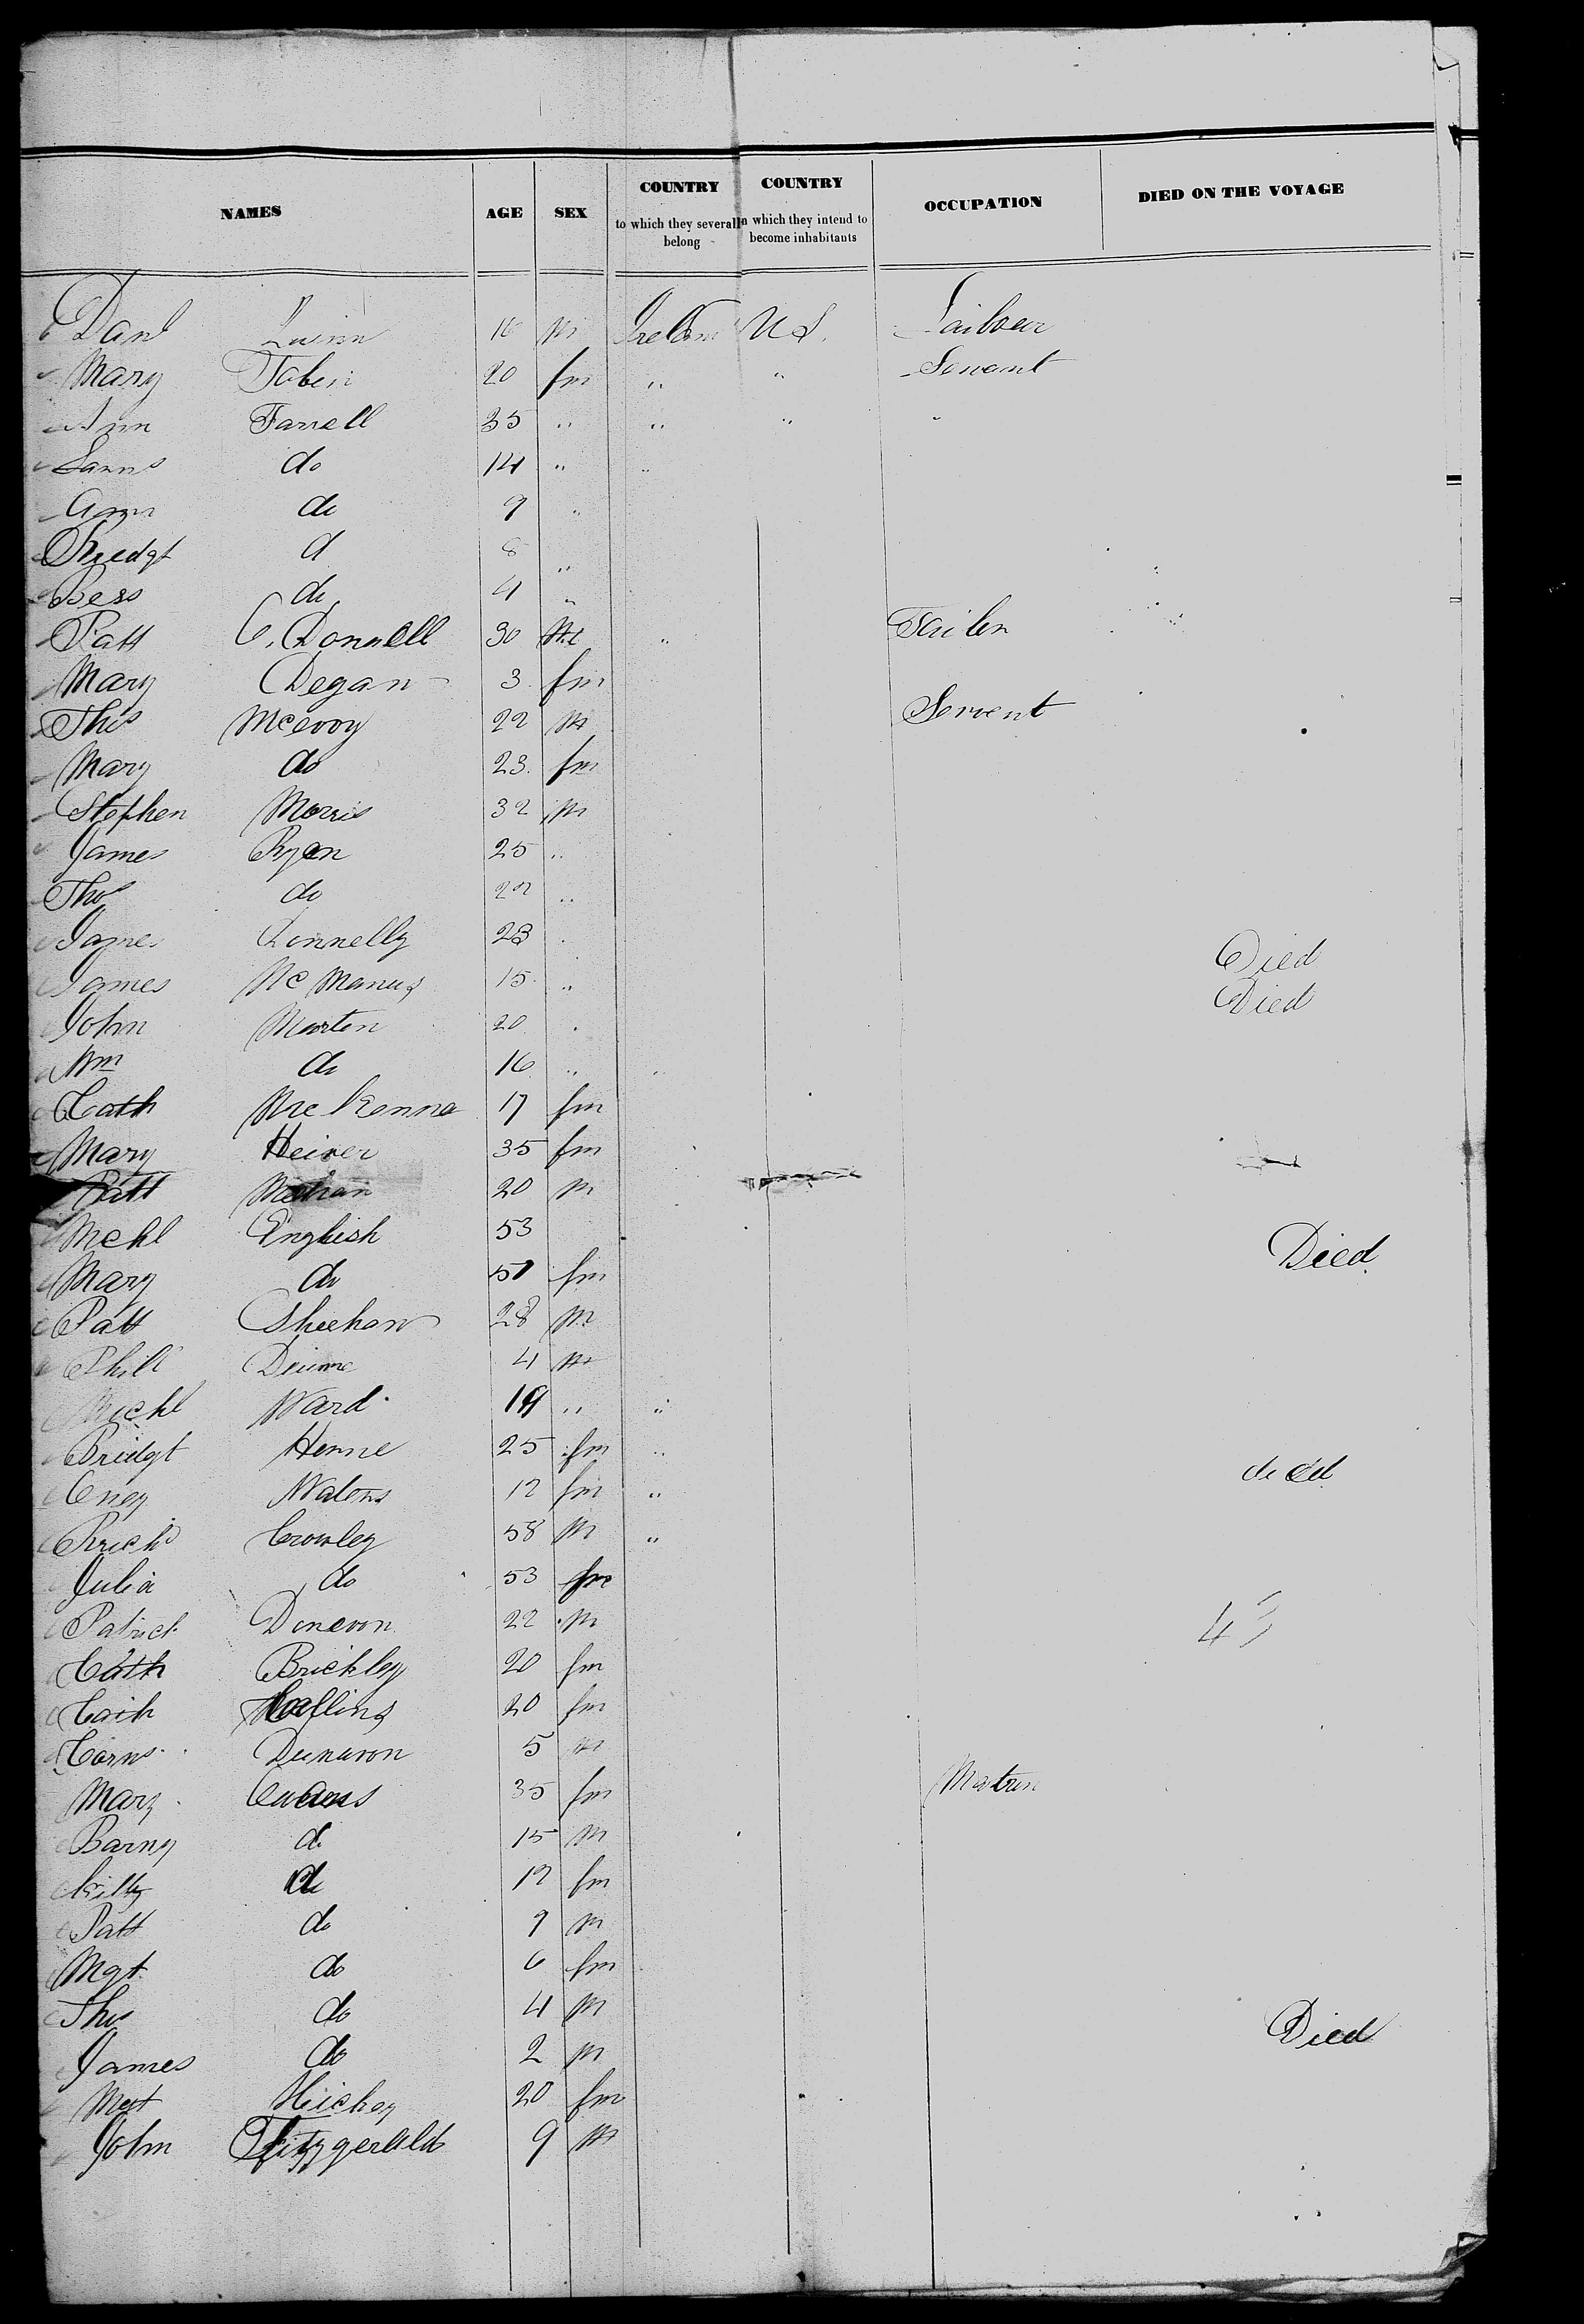 NAMES AGE SEX COUNTRY to which they severally belong COUNTRY in which they intend to become inhabitants OCCUPATION DIED ON THE VOYAGE
Danl Quinn 16 m Ireland U S.
Mary Tobin 20 fm " " Servant
Ann Farrell 35 " " " "
do 14 " "
Ann do 9 "
Bredgt d 8 "
Bess do 4 "
Patt O. Donnell 30 M " Tailor
Mary Degan 3 fm
Thos Mcevoy 22 M Servent
Mary do 23 fm
Stephen Morris 32 M
James Ryan 25 "
Thos do 22 "
James Connelly 23 " Died
James Mc Manus 15 " Died
John Marten 20 "
Wm do 16 " "
Cath Mc Kenna 17 fm
Mary Heiver 35 fm
Patt 20 M
Mchl English 53 Died
Mary do 51 fm
Patt Sheehan 28 M
Phill 4 M
Michl Ward 19 " "
Bridgt Henne 25 fm "
12 fm " died
Crowley 58 M "
Julia do 53 fm
Patrick Donevon 22 M 43
Cath Brickley 20 fm
Cath Collins 20 fm
Corns Dunavon 5 M
Mary 35 fm Matron
Barny do 15 M
Kitty do 12 fm
Patt do 9 M
Mgt do 6 fm
Thos do 4 M
James do 2 M Died
Mgt Hickey 20 fm
John Fitzgerald 9 M